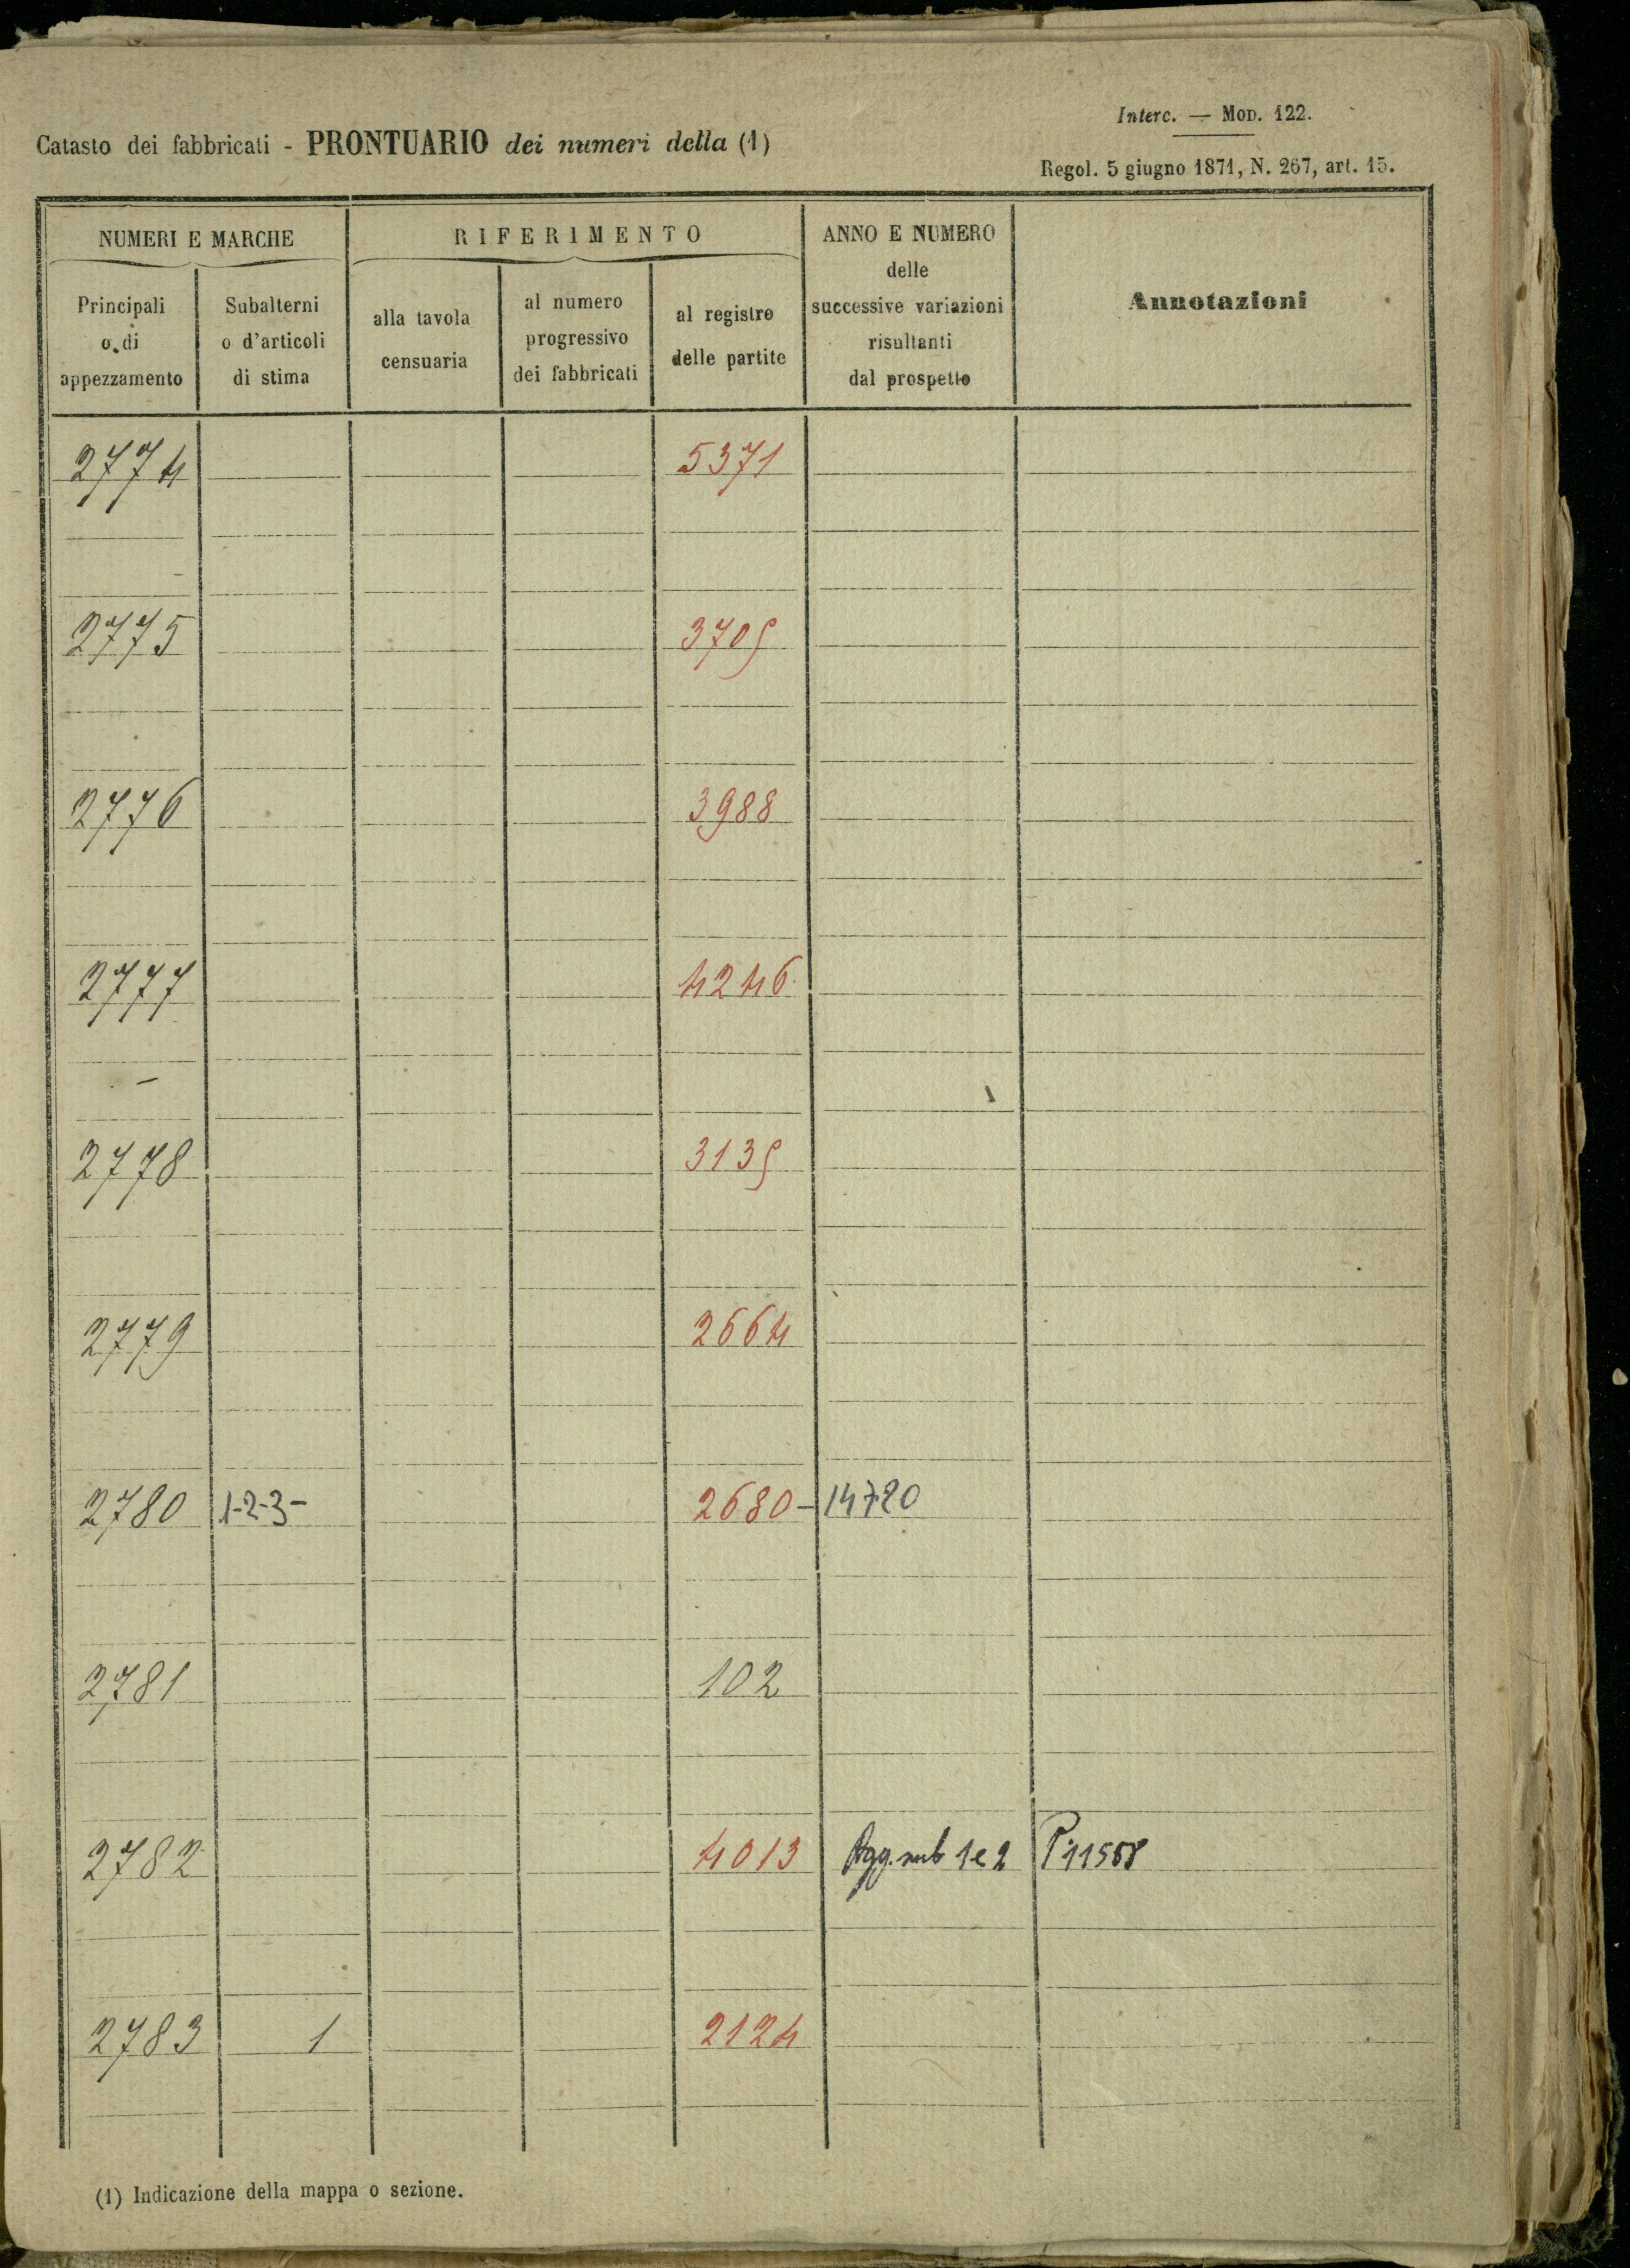 Interc. — Mod. 122.
Catasto dei fabbricati - PRONTUARIO dei numeri della (1)
Regol. 5 giugno 1871, N. 267, art. 15.
NUMERI E MARCHE
RIFERIMENTO
ANNO E NUMERO
delle
successive variazioni
risultanti
dal prospetto
Annotazioni
Principali
o di
appezzamento
Subalterni
o d'articoli
di stima
alla tavola
censuaria
al numero
progressivo
dei fabbricati
al registro
delle partite
2774 5371
2775 3705
2776 3988
2777 4246
2778 3135
2779 2664
2780 1-2-3- 2680- 14720
2781 102
2782 4013 Agg. sub 1 e 2 P. 11568
2783 1 2124
(1) Indicazione della mappa o sezione.